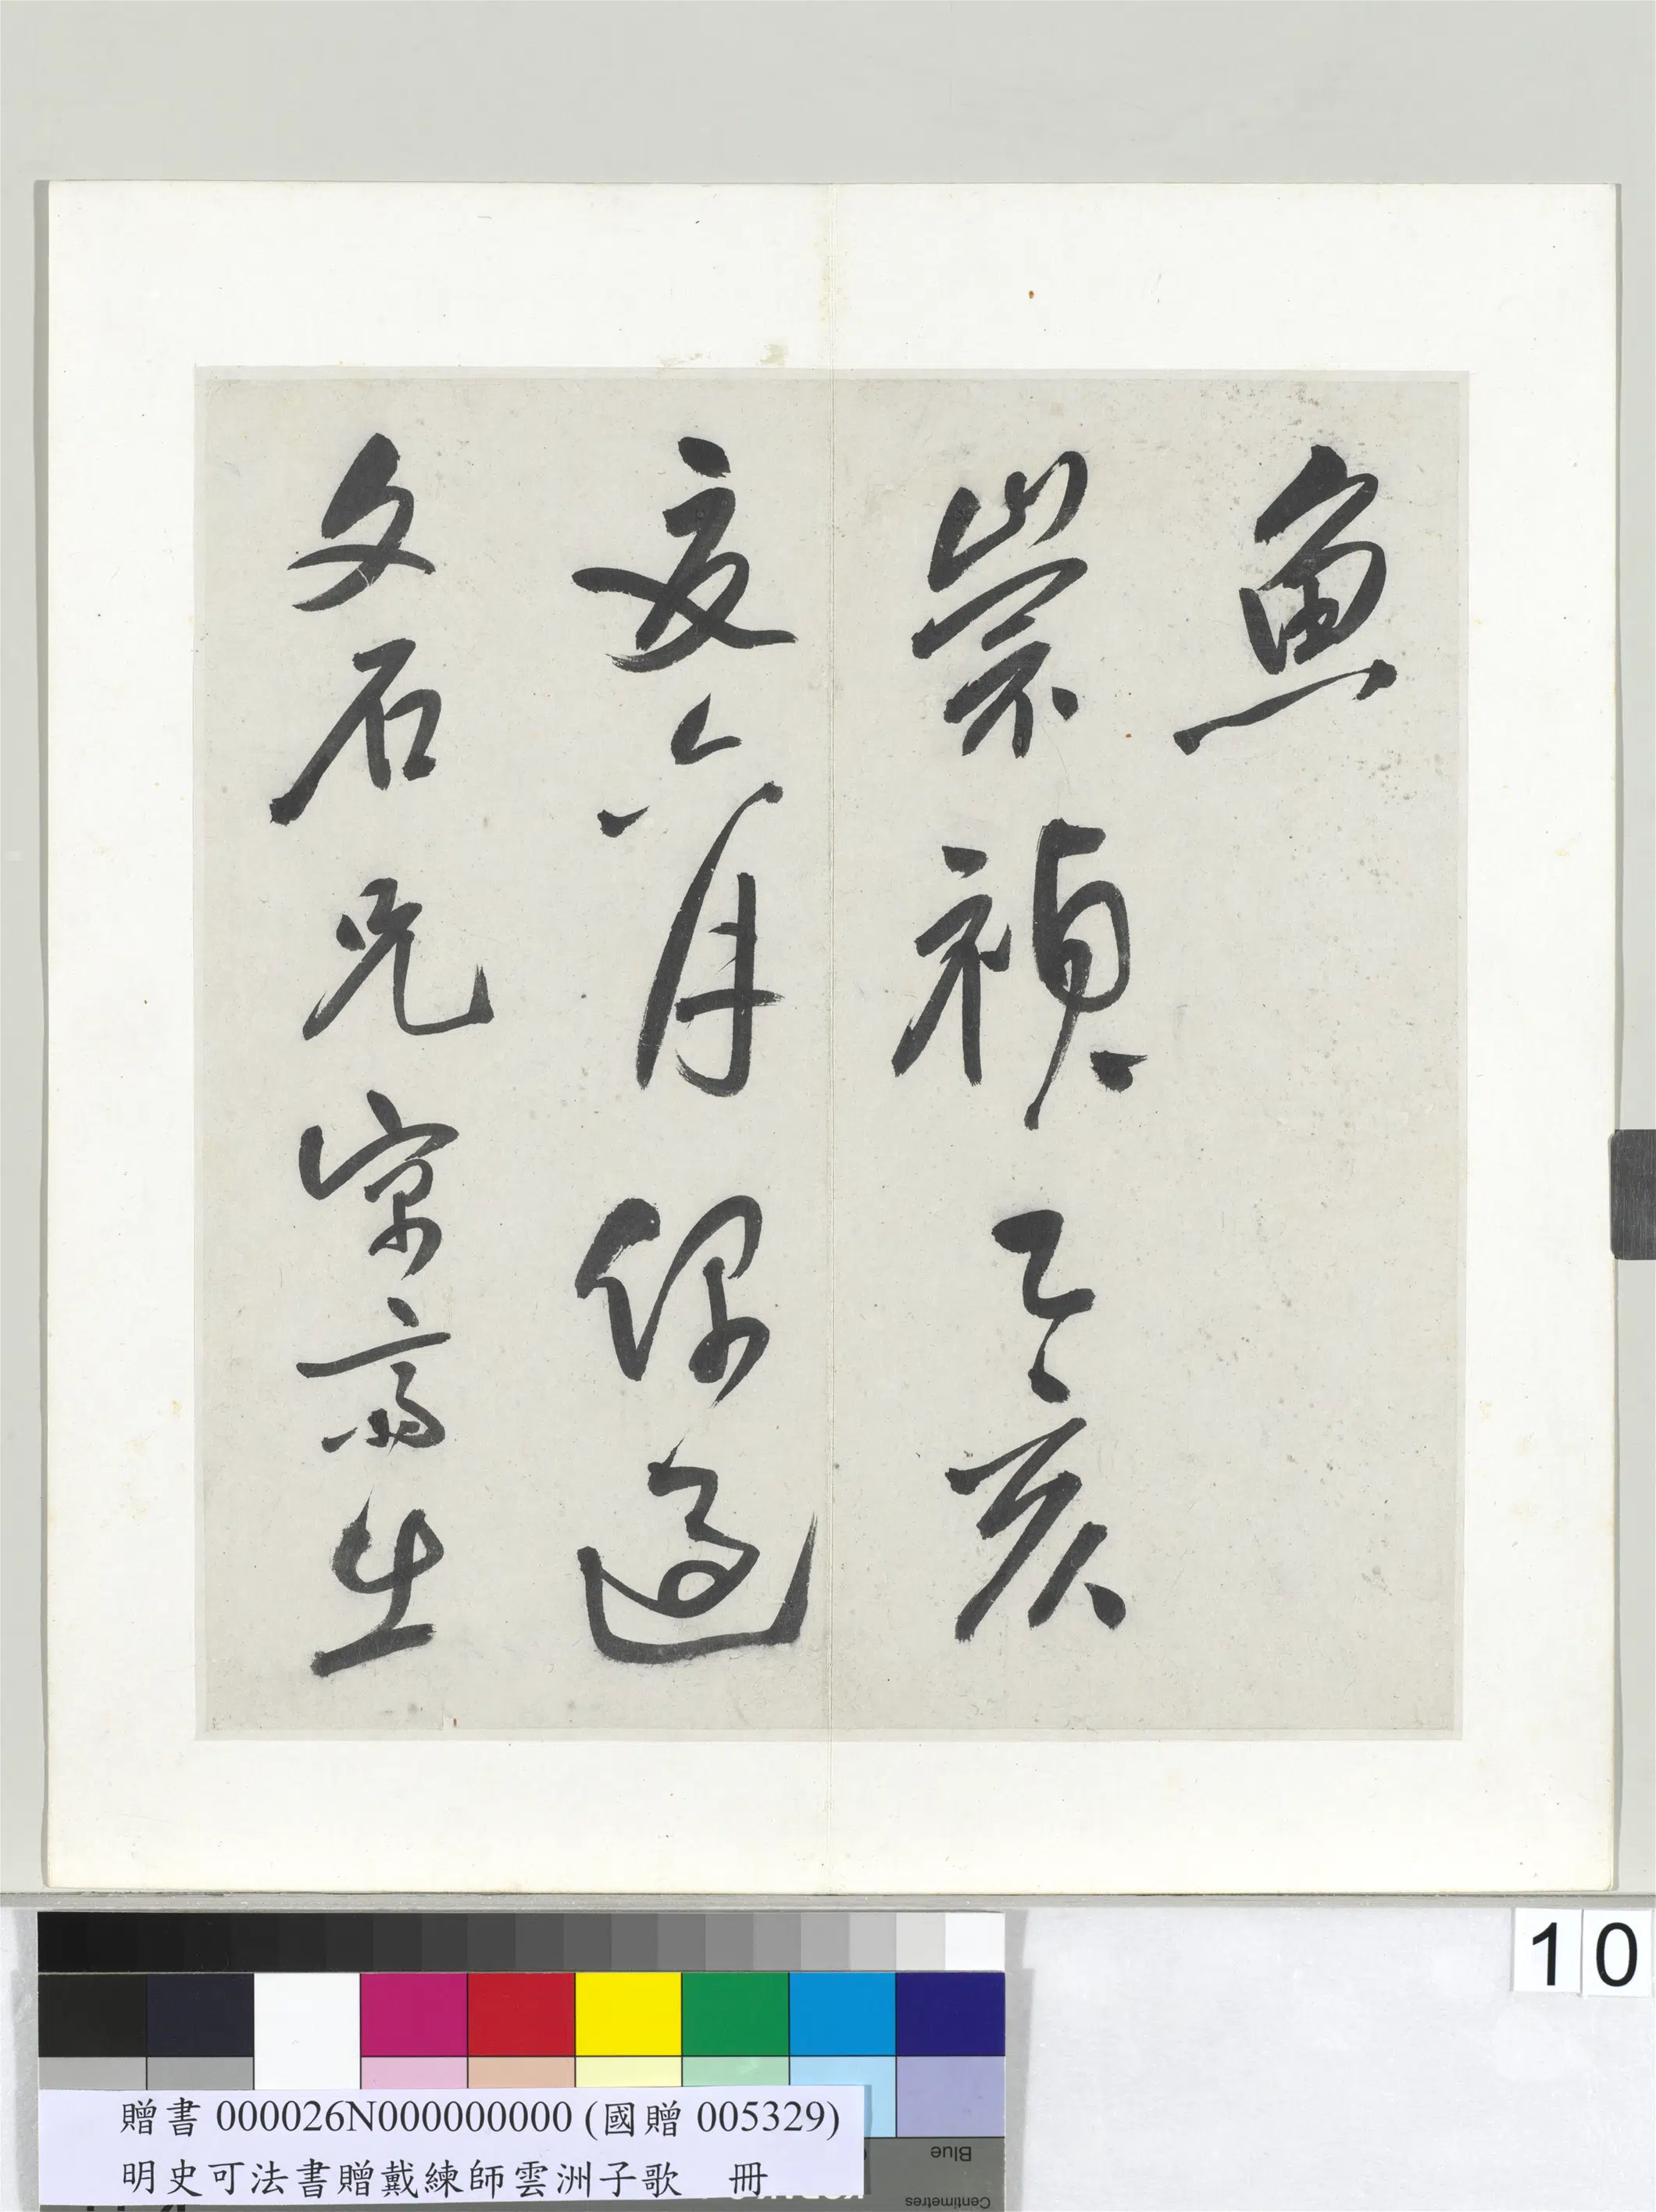 魚
崇禎乙亥
夏六月偶過
文石兄寓齋生
10
贈書 000026N000000000 (國贈 005329)
明史可法書贈戴練師雲洲子歌 冊
Blue
Centimetres